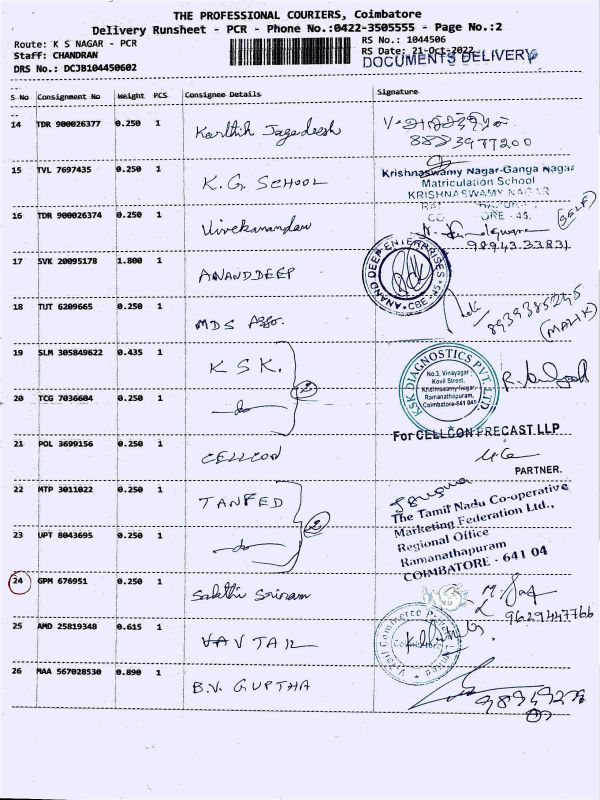 THE PROFESSIONAL COURIERS, Coimbatore
Delivery Runsheet - PCR - Phone No.:0422-3505555 - Page No.:2
Route: K S NAGAR - PCR
RS No.: 1044506
Staff: CHANDRAN
RS Date: 21-Oct-2022
DRS No.: DCJB104450602
DOCUMENTS DELIVERY
S No Consignment No Weight PCS Consignee Details Signature
14 TDR 900026377 0.250 1 Karthik Jagadeesh
15 TVL 7697435 0.250 1 K.G. SCHOOL
Krishnaswamy Nagar-Ganga Nagar
Matriculation School
KRISHNASWAMY NAGAR
16 TDR 900026374 0.250 1 Vivekanandan
(SELF)
9894333831
17 SVK 20095178 1.800 1 ANANDDEEP
ANAND DEEP ENTERPRISES CBE-45
18 TUT 6209665 0.250 1 MDS Asso.
8939385245
(MALIK)
19 SLM 305849622 0.435 1 KSK.
2
KSK DIAGNOSTICS PVT. LTD
No.3, Vinayagar
Kovil Street,
Krishnasamy-Nagar
Ramanathapuram,
Coimbatore-641 045
20 TCG 7036604 0.250 1 -do-
21 POL 3699156 0.250 1 CELLCON
For CELLCON PRECAST LLP
PARTNER.
22 MTP 3011022 0.250 1 TANFED
2
The Tamil Nadu Co-operative
Marketing Federation Ltd.,
Regional Office
Ramanathapuram
COIMBATORE - 641 04
23 UPT 8043695 0.250 1 -do-
24 GPM 676951 0.250 1 Sakthi Sriram
9629447766
25 AMD 25819348 0.615 1 VAVTAR
26 MAA 567028530 0.890 1 B.V. GUPTHA